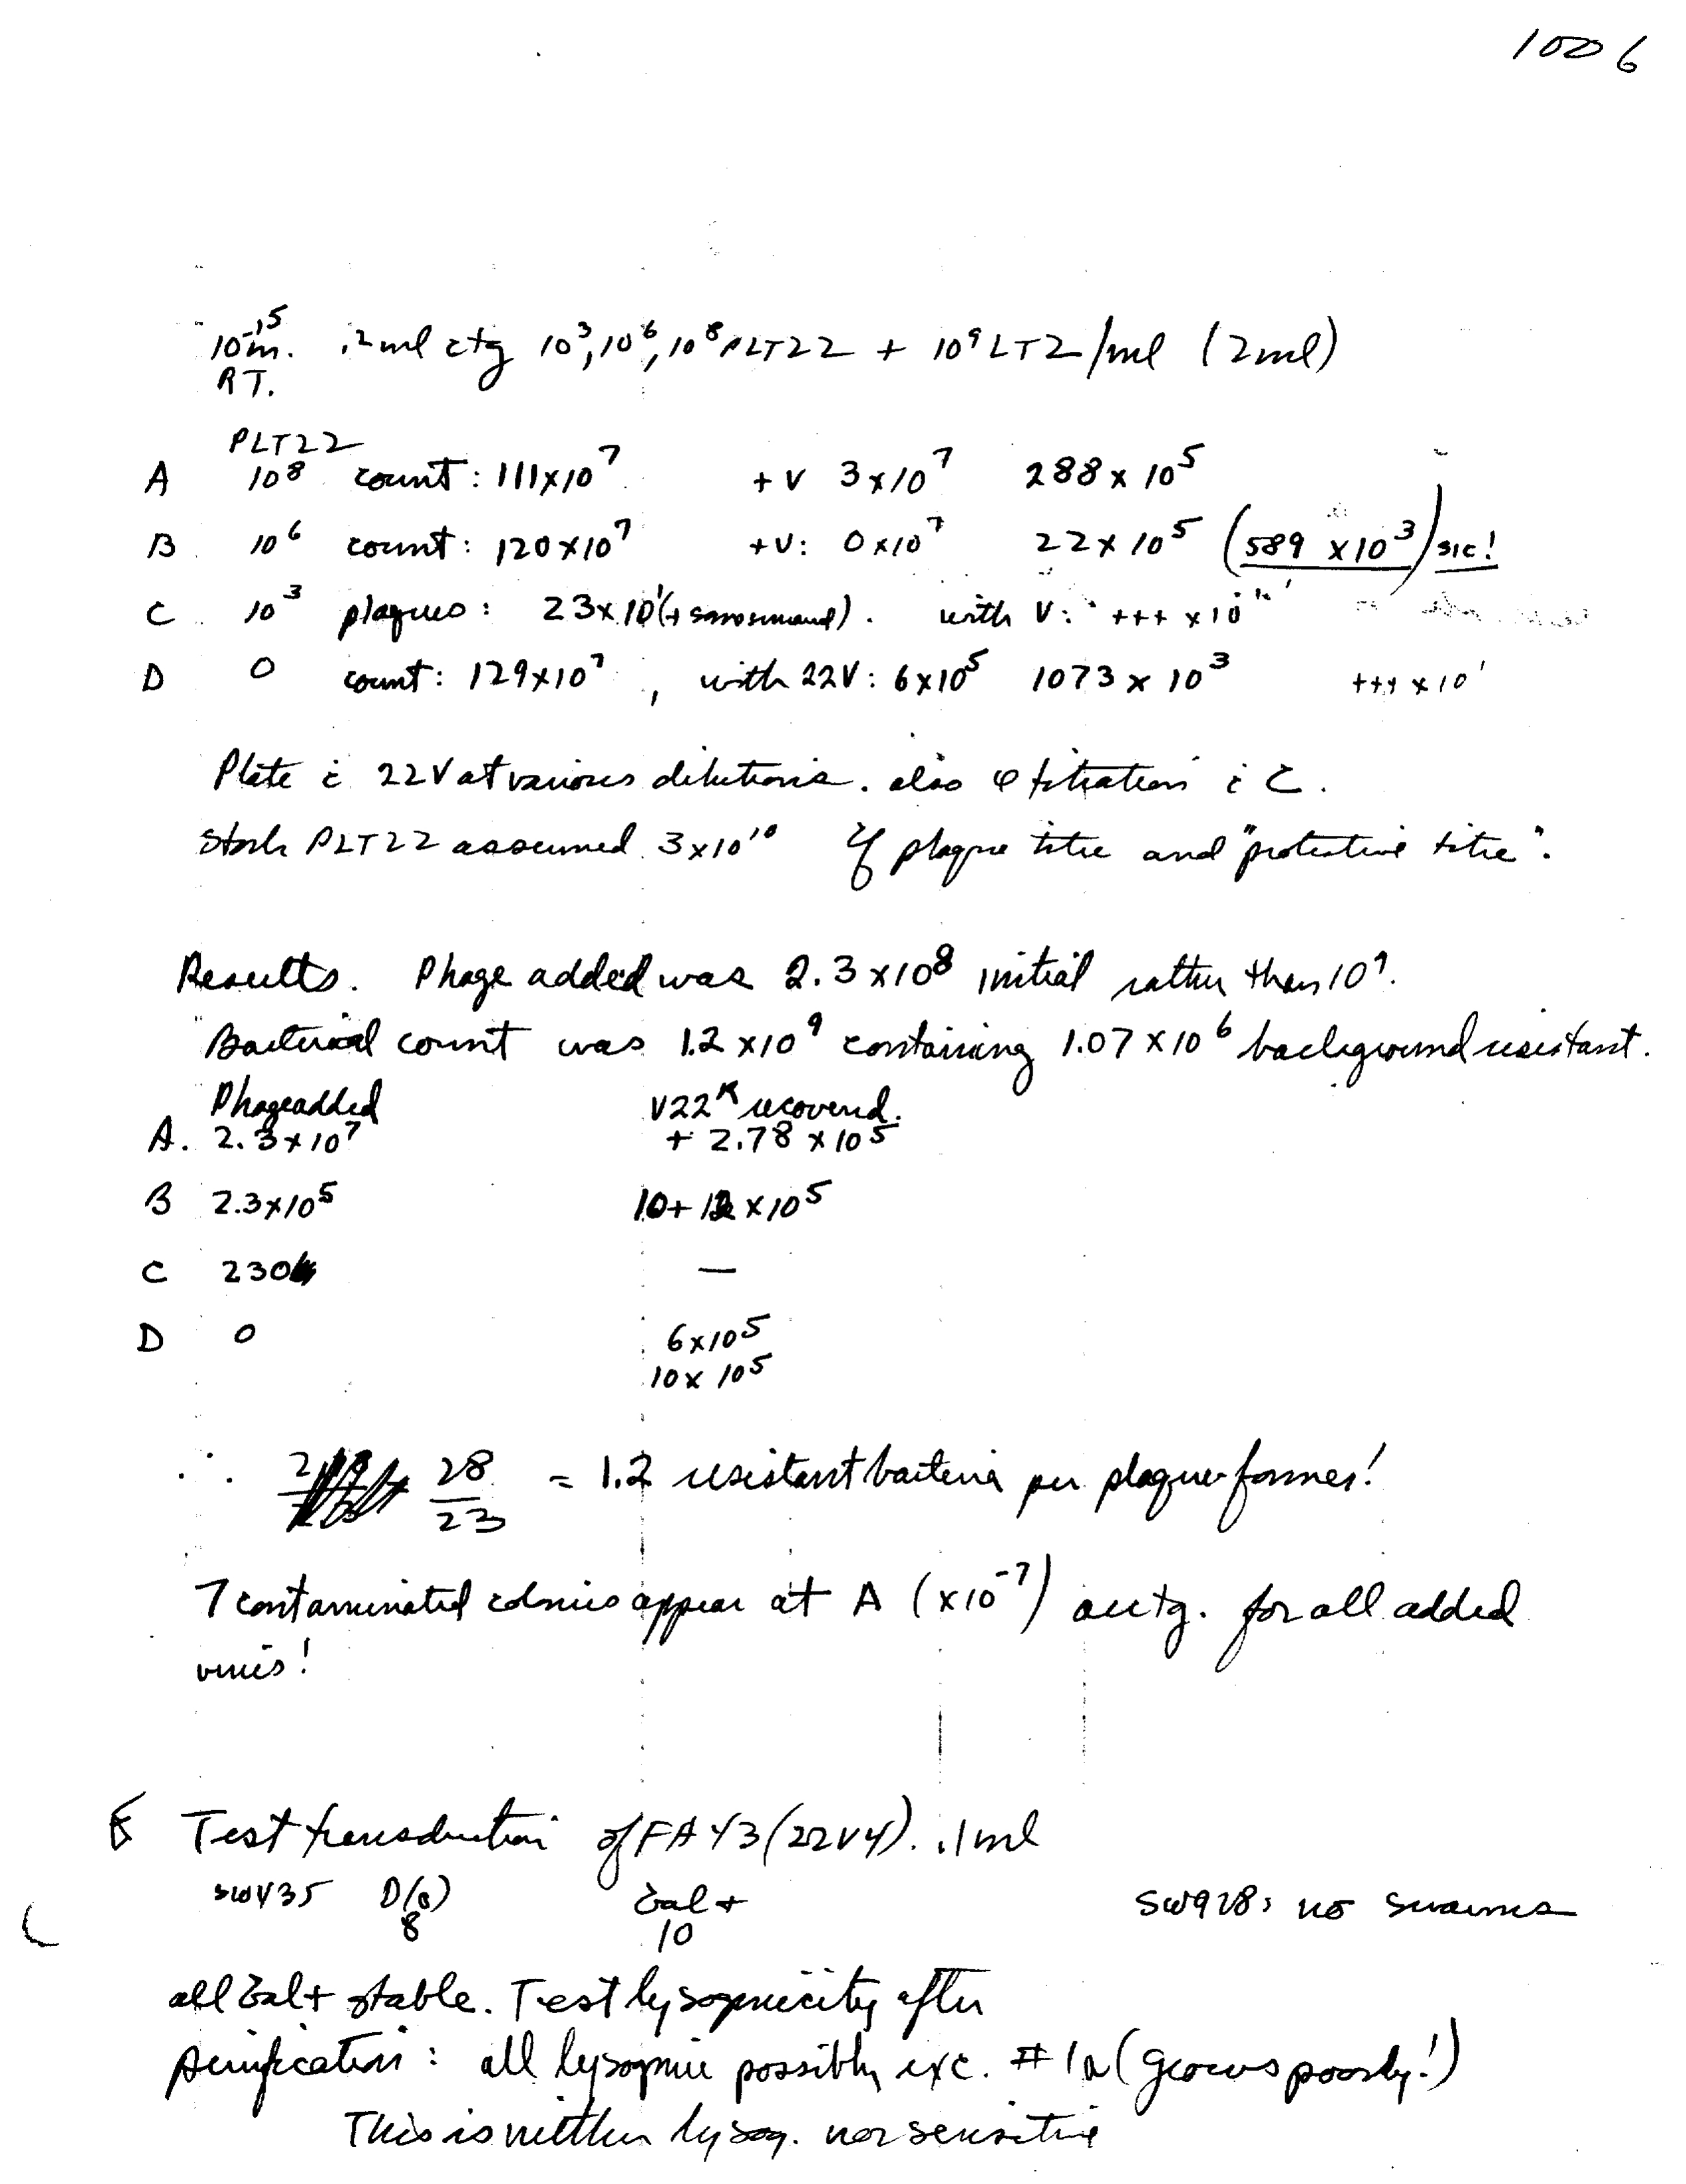 1006
10-15
m. .2ml ctg 10³, 10⁶, 10⁸ PLT22 + 10⁹ LT2/ml (2ml)
RT.
PLT22
A 10⁸ count: 111x10⁷ +V 3x10⁷ 288x10⁵
B 10⁶ count: 120x10⁷ +V: 0x10⁷ 22x10⁵ (589 x10³) sic!
C 10³ plaques: 23x10¹ with V: +++ x10
D 0 count: 129x10⁷, with 22V: 6x10⁵ 1073x10³ +++ x10¹
Plate c̄ 22V at various dilutions. also φ titration c̄ C.
Stock PLT22 assumed 3x10¹⁰ If plaque titre and "protective titre".
Results. Phage added was 2.3x10⁸ initial rather than 10⁹.
Bacterial count was 1.2x10⁹ containing 1.07x10⁶ background resistant.
Phage added V22ᴿ recovered.
A. 2.3x10⁷ + 2.78x10⁵
B 2.3x10⁵ 10+12x10⁵
C 230 —
D 0 6x10⁵
10x10⁵
∴ 28/23 = 1.2 resistant bacteria per plaque-former!
7 contaminated colonies appear at A (x10⁻⁷) acctg. for all added
virus!
E Test transduction of FA Y3 (22V4). .1ml
SW435 D(s) Gal+ SW928: no swarms
8 10
all Gal+ stable. Test lysogenicity after
purification: all lysogenic possibly exc. #1a (grows poorly!)
This is neither lysog. nor sensitive